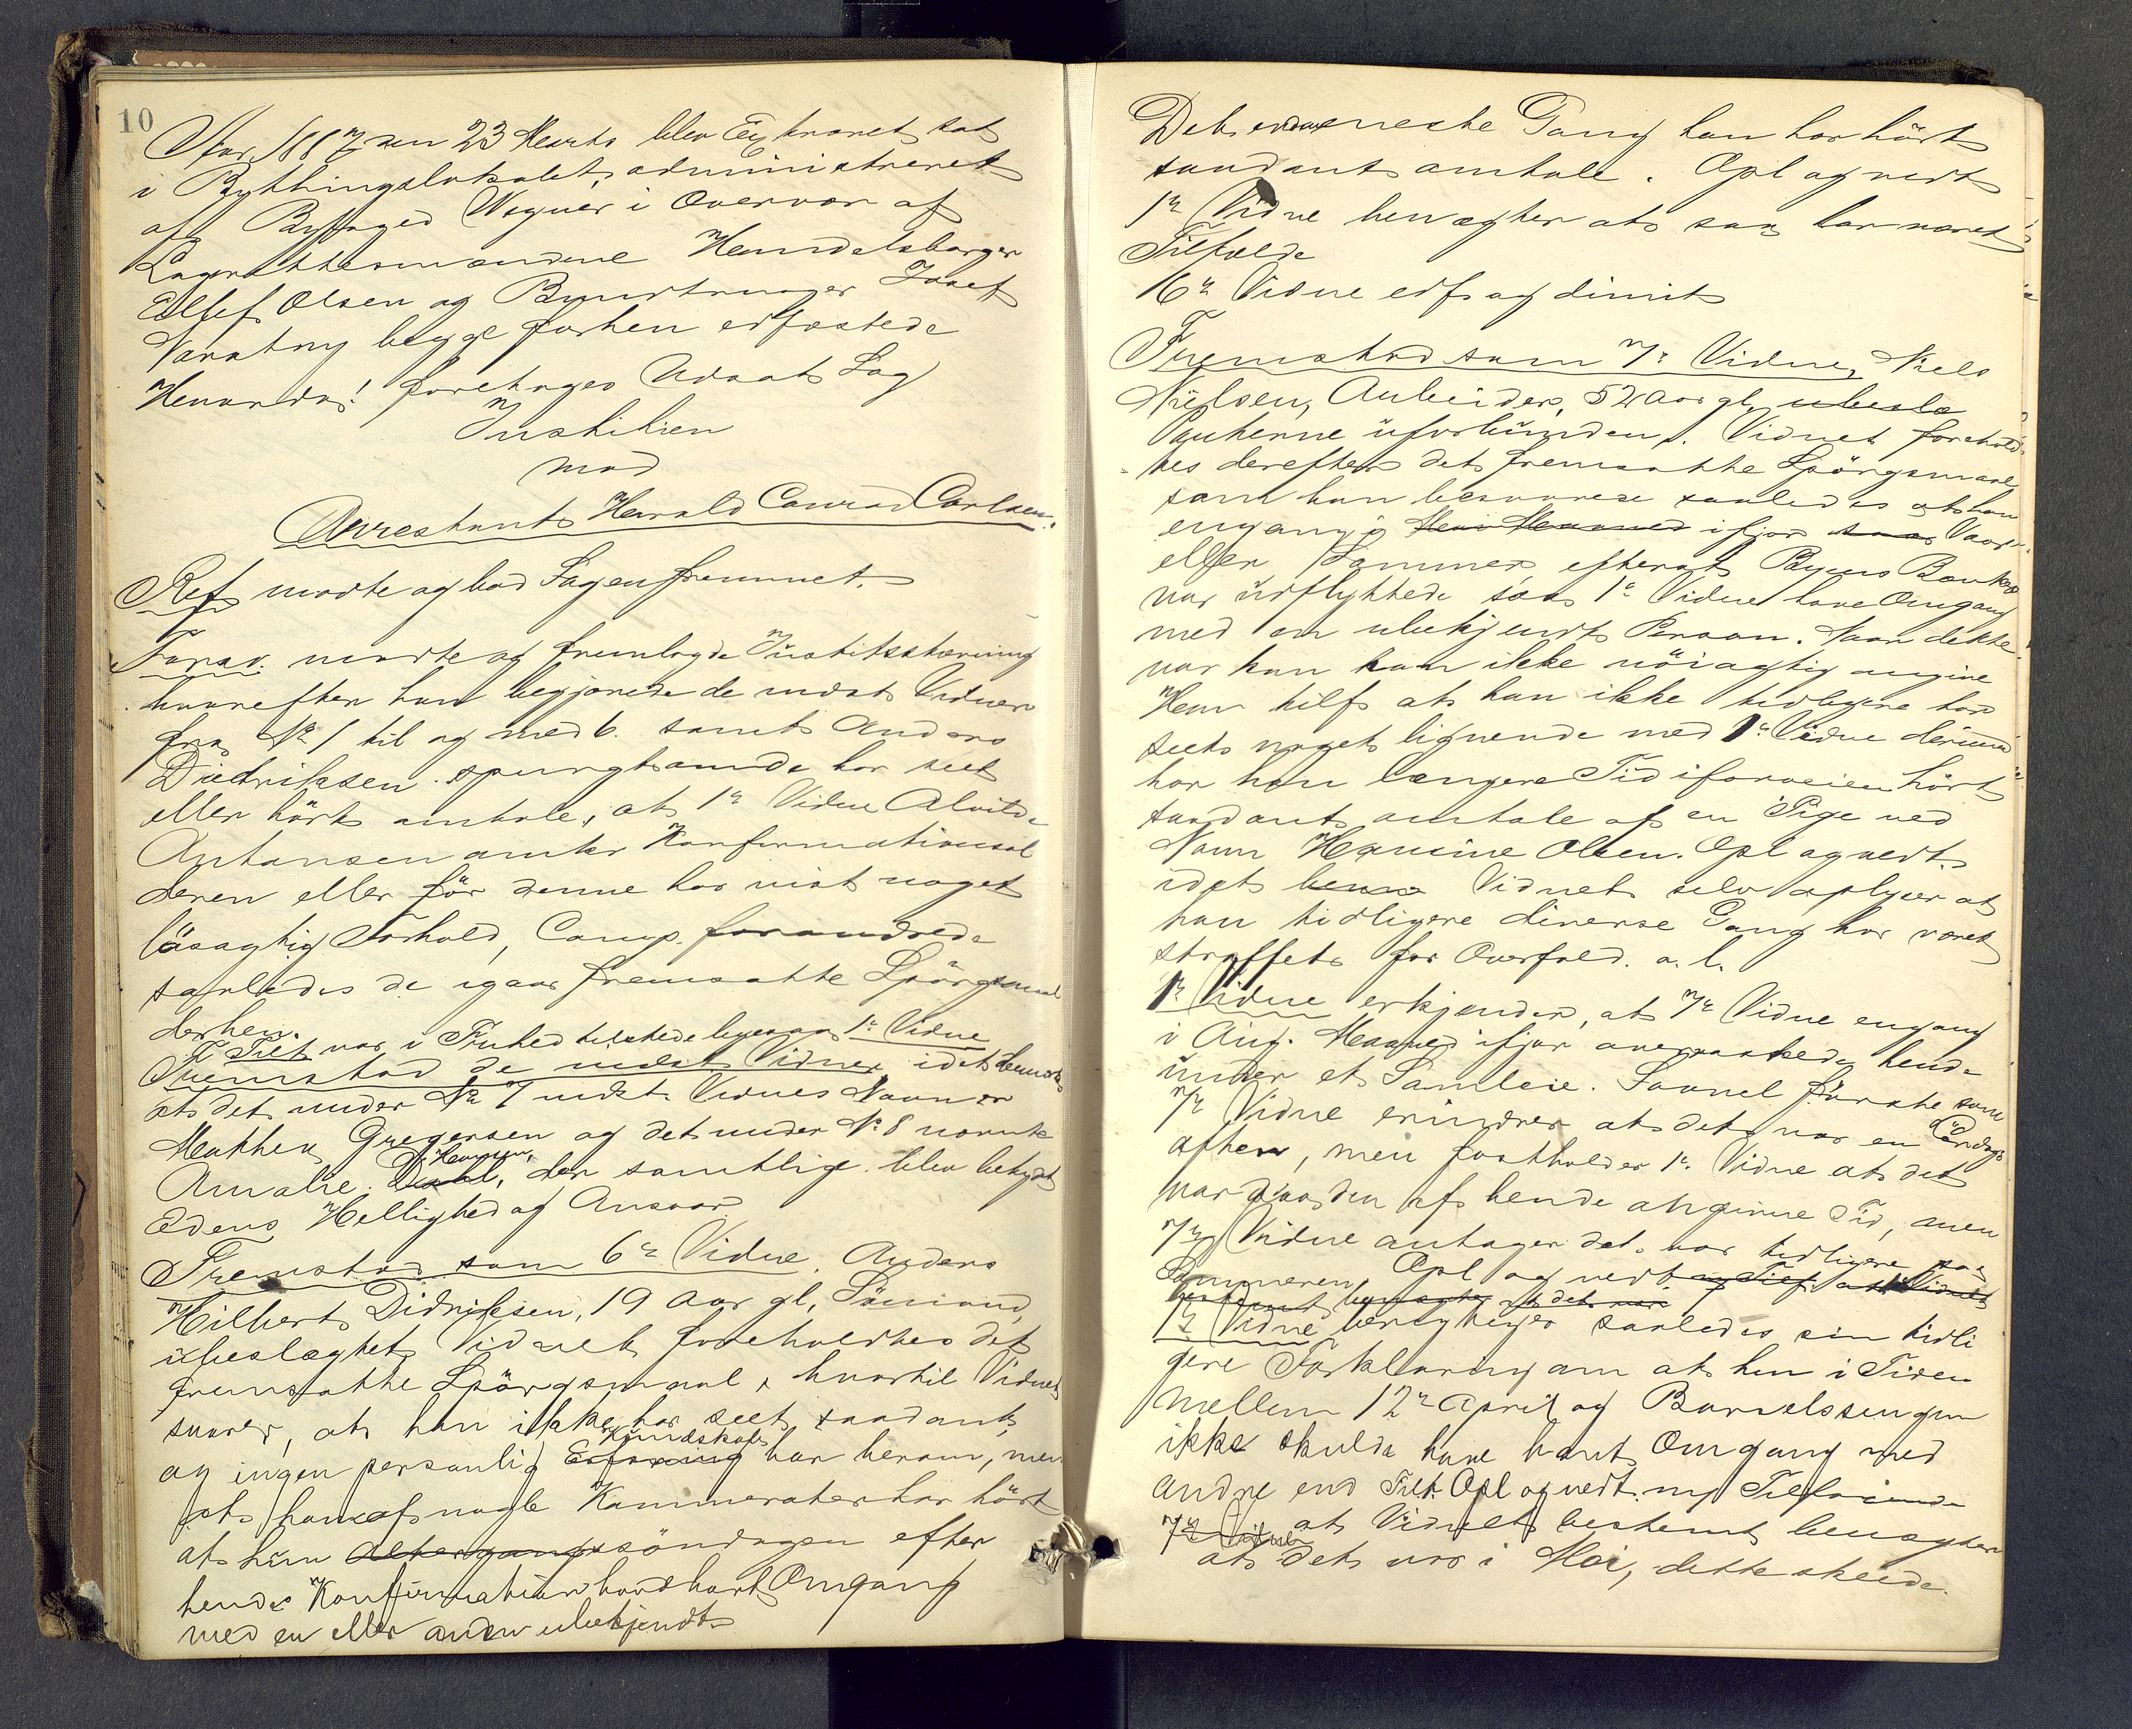 10
Aar 1887 den 23 Marts blev Extraret sat
i Bythingslokalet, administreret
af Byfoged Wegner i Overvær af
Lagrettesmændene Handelsborger
Ellef Olsen og Josef
begge forhen edfæstede
Hvorda! foretoges Udsat Sag
Justitien
mod
Arrestant Harald Conrad Carlsen.
Ref mødte og bad Sagen fremmet.
Forsv. mødte og fremlagde Justitsstævning
hvorefter han begjærede de indst Vidner
fra No 1 til og med 6. samt Anders
Diedriksen spurgt om de har seet
eller hørt omtale, at 1ste Vidne Alvilde
Antonsen omkr Konfirmationsal
deren eller før denne har vist noget
løsagtig Forhold, Comp. forandrede
saaledes de igaar fremsatte Spørgsmaal
derhen.
Tilt var i Frihed tilstede ligesaa 1ste Vidne
Fremstod de indst Vidner idet bemærkes
at det under No 7 indst Vidnes Navn er
Mathea Gregersen og det under No 8 nævnte
Amalie Dahl, Hansen, der samtlige blev betydet
Edens Hellighed og Ansvar
Fremstod som 6te Vidne. Anders
Hilbert Didriksen, 19 Aar gl, Sømand,
ubeslægtet Vidnet foreholdtes det
fremsatte Spørgsmaal, hvortil Vidnet
svarer, at han ikke har seet saadant
og ingen personlig Erfaring Kundskab har herom, men
at han af nogle Kammerater har hørt
at hun Altergangs søndagen efter
hendes Konfirmation havde havt Omgang
med en eller anden ubekjendt
Det eneste Gang han har hørt
saadant omtale. Opl og vedt
1ste Vidne benægter at saa har været
Tilfælde
6te Vidne edf og dimit
Fremstod som 7de Vidne, Niels
Nielsen, Arbeider, 52 Aar gl, ubeslæ
Parterne uforbunden. Vidnet forehold
tes derefter det fremsatte Spørgsmaal
som han besvarede saaledes at han
engang i ifjor saa Vaar
eller Sommer, efterat
var udflyttede saa 1ste Vidne have Omgang
med en ubekjendt Person. Naar dette
var kan han ikke nøiagtig angive
Han tilf at han ikke tidligere har
seet noget lignende med 1ste Vidne derimod
har han længere Tid iforveien hørt
saadant omtale af en Pige ved
Navn Hansine Olsen. Opl og vedt
idet Vidnet selv oplyser at
han tidligere diverse Gang har været
straffet for Overfald. o. l.
1ste Vidne erkjender, at 7de Vidne engang
i Aug. Maaned ifjor overraskede hende
under et Samleie. Saavel første som
7de Vidne erindrer at det var en Lørdags
aften, men fastholder 1ste Vidne at det
var paa den af hende angivne Tid, men
7de Vidne antager det var tidligere paa
Sommeren. Opl og vedt
1ste Vidne benægter saaledes sin tidli
gere Forklaring om at hun i Tiden
mellem 12te April og Barselssengen
ikke skulde have havt Omgang med
andre end Tilt. Opl og vedt. Tilføiende
7de Vidne at Vidnet bestemt benægter
at det var i Mai, dette skeede.